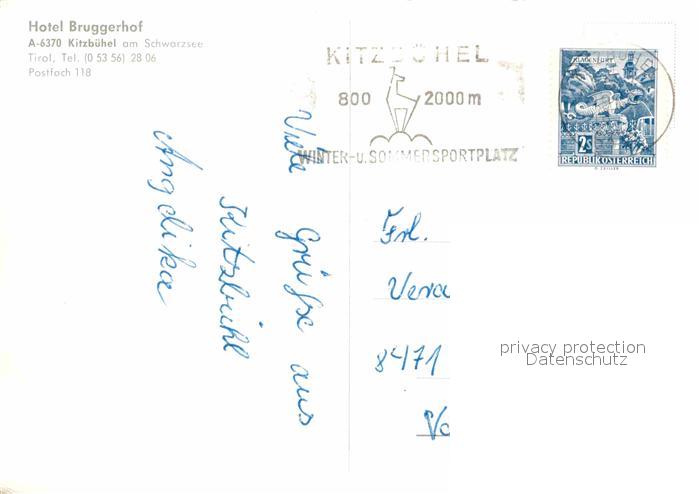 Hotel Bruggerhof
A-6370 Kitzbühel am Schwarzsee
Tirol, Tel. (0 53 56) 28 06
Postfach 118
KITZBÜHEL
800 2000m
WINTER-u. SOMMERSPORTPLATZ
KLAGENFURT
2S
REPUBLIK ÖSTERREICH
Viele Grüße aus
Kitzbühl
Angelika
Frl.
Vera
8471
Vo
privacy protection
Datenschutz